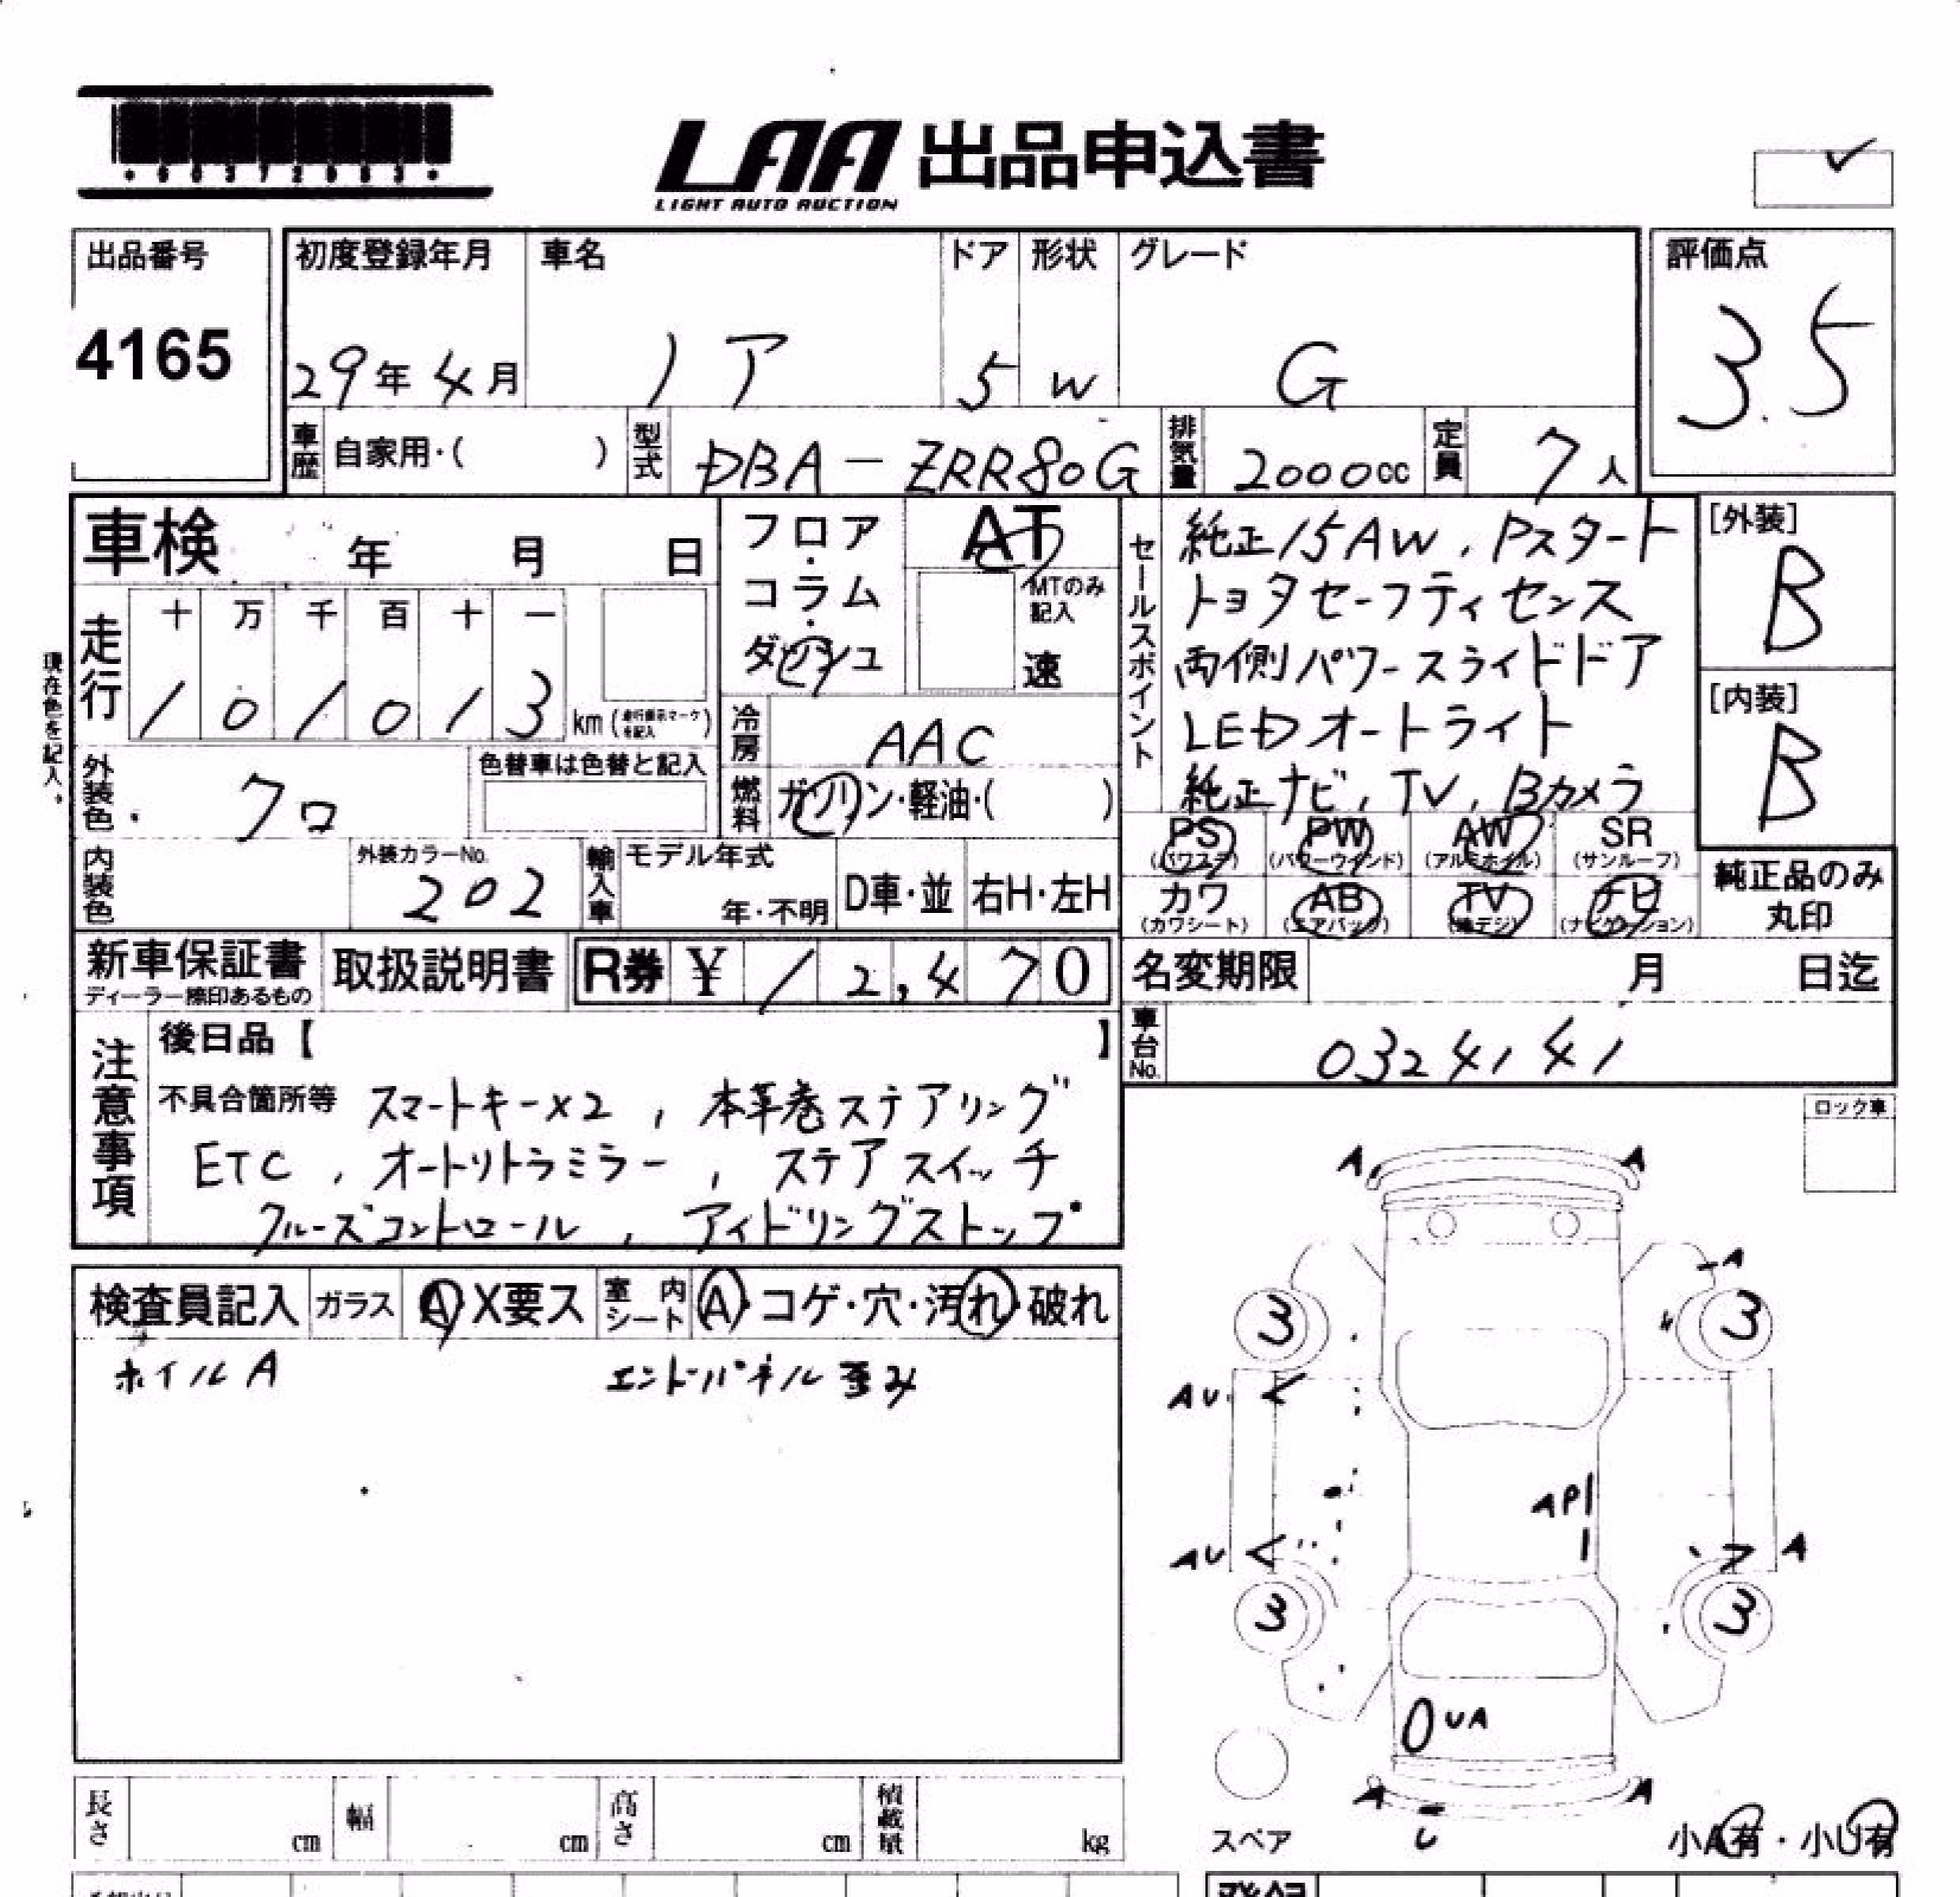 LAA 出品申込書
LIGHT AUTO AUCTION
出品番号
4165
初度登録年月
29年4月
車名
ノア
ドア
5
形状
W
グレード
G
評価点
3.5
車歴 自家用・( )
型式 DBA-ZRR80G
排気量 2000cc
定員 7人
車検 年 月 日
現在色を記入。
走行
十 万 千 百 十 一
1 0 1 0 1 3 km
フロア・
コラム・
ダッシュ
AT
MTのみ
記入
速
冷房 AAC
燃料 ガソリン・軽油・( )
外装色 クロ
色替車は色替と記入
内装色
外装カラーNo.
202
輸入車
モデル年式
年・不明
D車・並
右H・左H
セールスポイント
純正15AW, Pスタート
トヨタセーフティセンス
両側パワースライドドア
LEDオートライト
純正ナビ, TV, Bカメラ
[外装]
B
[内装]
B
PS PW AW SR
(パワステ) (パワーウインド) (アルミホイル) (サンルーフ)
カワ AB TV ナビ
(カワシート) (エアバック) (地デジ) (ナビゲーション)
純正品のみ
丸印
新車保証書
ディーラー捺印あるもの
取扱説明書
R券 ¥ 12,470
名変期限 月 日迄
車台No. 0324141
注意事項
後日品【 】
不具合箇所等 スマートキー×2, 本革巻ステアリング
ETC, オートリトラミラー, ステアスイッチ
クルーズコントロール, アイドリングストップ
ロック車
検査員記入 ガラス A X要ス 室内シート A・コゲ・穴・汚れ・破れ
ホイルA エンドパネル歪み
A A
A
3 3
AU
AP
AU A
3 3
UA
A A
U
スペア
小A有・小U有
長さ cm 幅 cm 高さ cm 積載量 kg